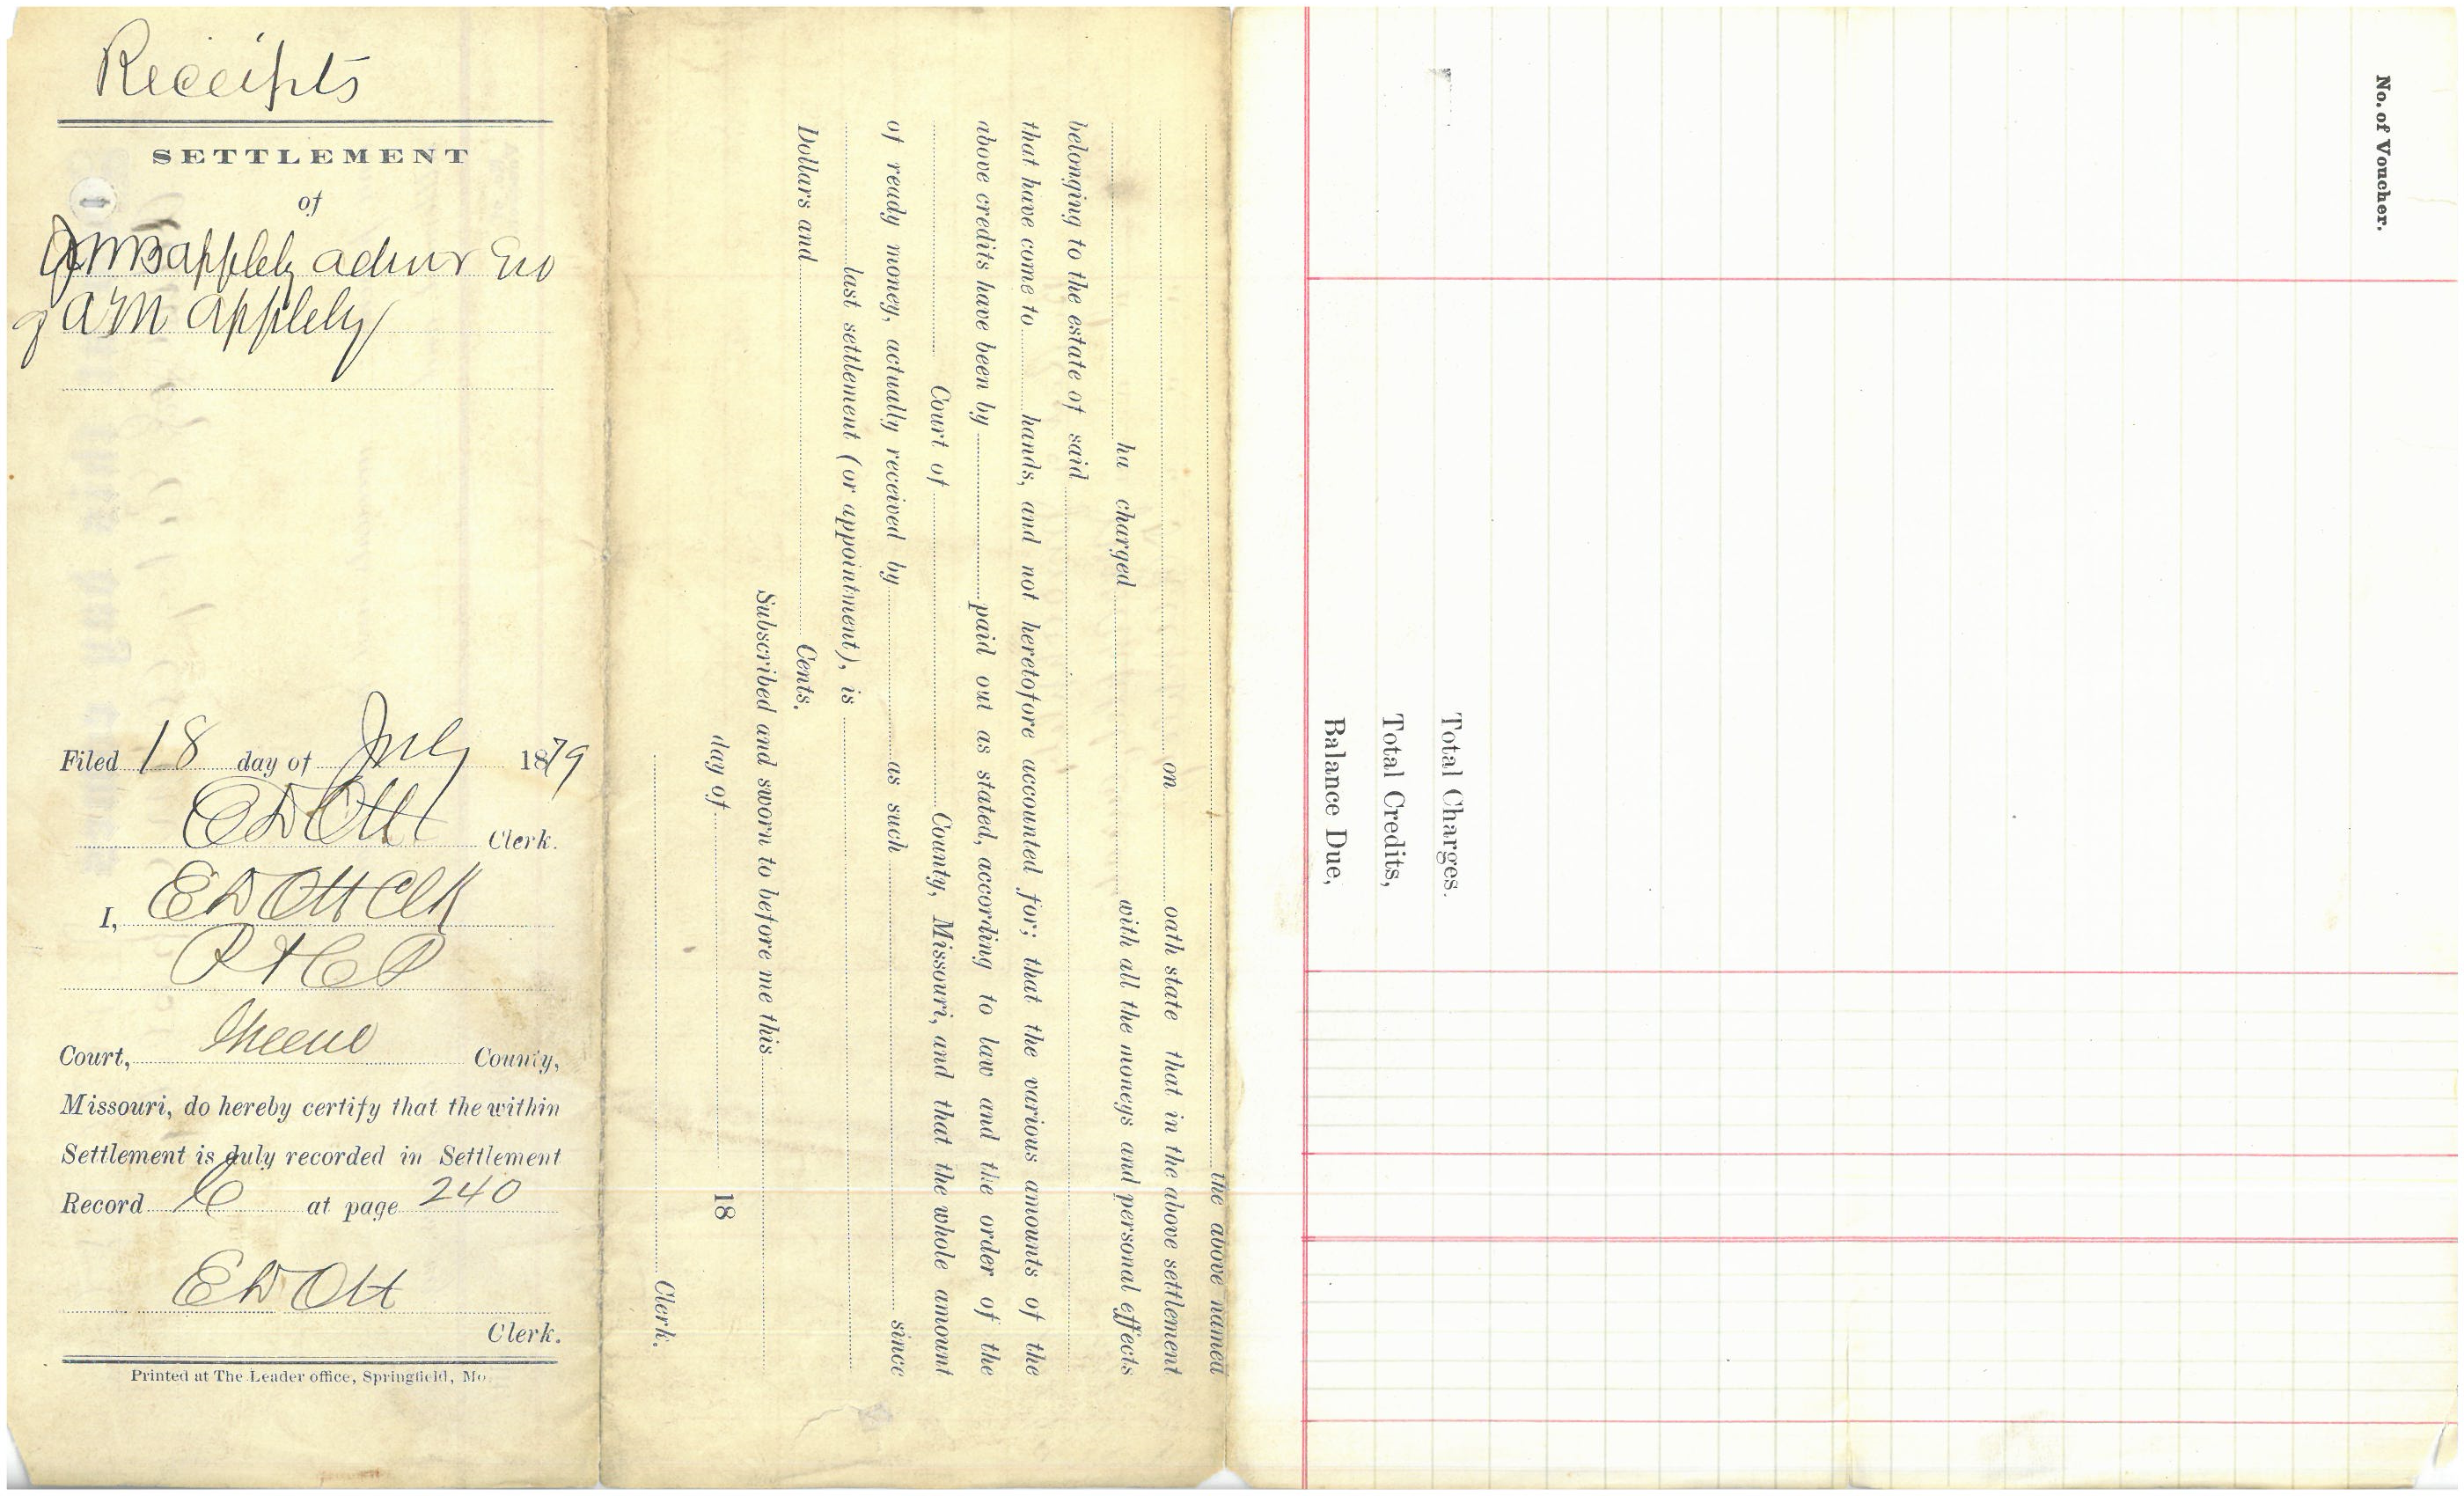 Receipts
SETTLEMENT
of
J M B appleby admr Est
of A M appleby
Filed 18 day of July 1879
E D Ott Clerk.
I, E D Ott Clk
P & C P
Court, Greene County,
Missouri, do hereby certify that the within
Settlement is duly recorded in Settlement
Record C at page 240
E D Ott
Clerk.
Printed at The Leader office, Springfield, Mo.
the above named
on oath state that in the above settlement
ha charged with all the moneys and personal effects
belonging to the estate of said
that have come to hands, and not heretofore accounted for; that the various amounts of the
above credits have been by paid out as stated, according to law and the order of the
Court of County, Missouri, and that the whole amount
of ready money, actually received by as such since
last settlement (or appointment), is
Dollars and Cents.
Subscribed and sworn to before me this
day of 18
Clerk.
No. of Voucher.
Total Charges.
Total Credits,
Balance Due,